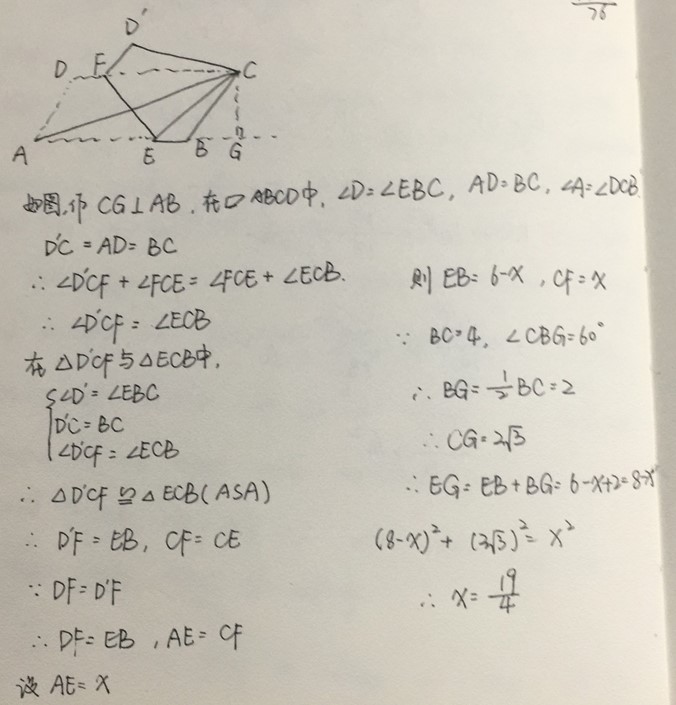 76
D'
D F C
A E B G
如图,作 CG⊥AB. 在▱ABCD中, ∠D=∠EBC, AD=BC, ∠A=∠DCB
D'C = AD = BC
∴ ∠D'CF + ∠FCE = ∠FCE + ∠ECB.
∴ ∠D'CF = ∠ECB
在 △D'CF 与 △ECB中,
{∠D' = ∠EBC
D'C = BC
∠D'CF = ∠ECB
∴ △D'CF ≌ △ECB(ASA)
∴ D'F = EB, CF = CE
∵ DF = D'F
∴ DF = EB , AE = CF
设 AE = x
则 EB = 6-x , CF = x
∵ BC=4, ∠CBG=60°
∴ BG = 1/2 BC = 2
∴ CG = 2√3
∴ EG = EB + BG = 6-x+2 = 8-x
(8-x)² + (2√3)² = x²
∴ x = 19/4